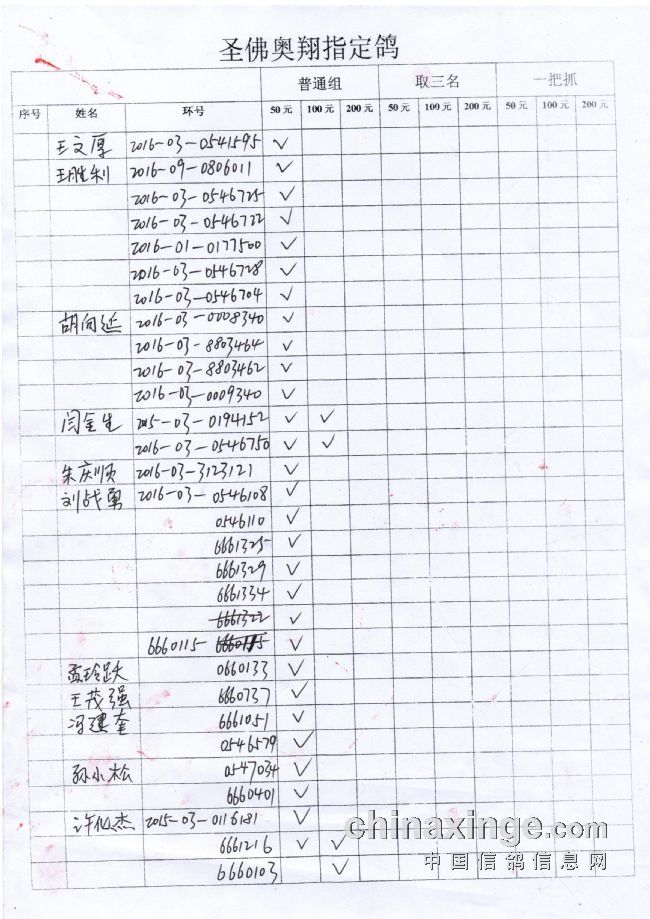 圣佛奥翔指定鸽
普通组 取三名 一把抓
序号 姓名 环号 50元 100元 200元 50元 100元 200元 50元 100元 200元
王文厚 2016-03-0541595 ✓
王胜利 2016-09-0806011 ✓
2016-03-0546725 ✓
2016-03-0546722 ✓
2016-01-0177500 ✓
2016-03-0546728 ✓
2016-03-0546704 ✓
胡向延 2016-03-0008340 ✓
2016-03-8803464 ✓
2016-03-8803462 ✓
2016-03-0009340 ✓
闫金生 2015-03-0194152 ✓ ✓
2016-03-0546750 ✓ ✓
朱庆顺 2016-03-3123121 ✓
刘战勇 2016-03-0546108 ✓
0546110 ✓
6661325 ✓
6661329 ✓
6661334 ✓
6661322 ✓
6660115 ✓
孟玲跃 0660133 ✓
王茂强 6660737 ✓
冯建奎 6661051 ✓
0546579 ✓
孙小松 0547034 ✓
6660401 ✓
许仙杰 2015-03-0116181 ✓
6661216 ✓ ✓
6660103 ✓
chinaxinge.com
中国信鸽信息网